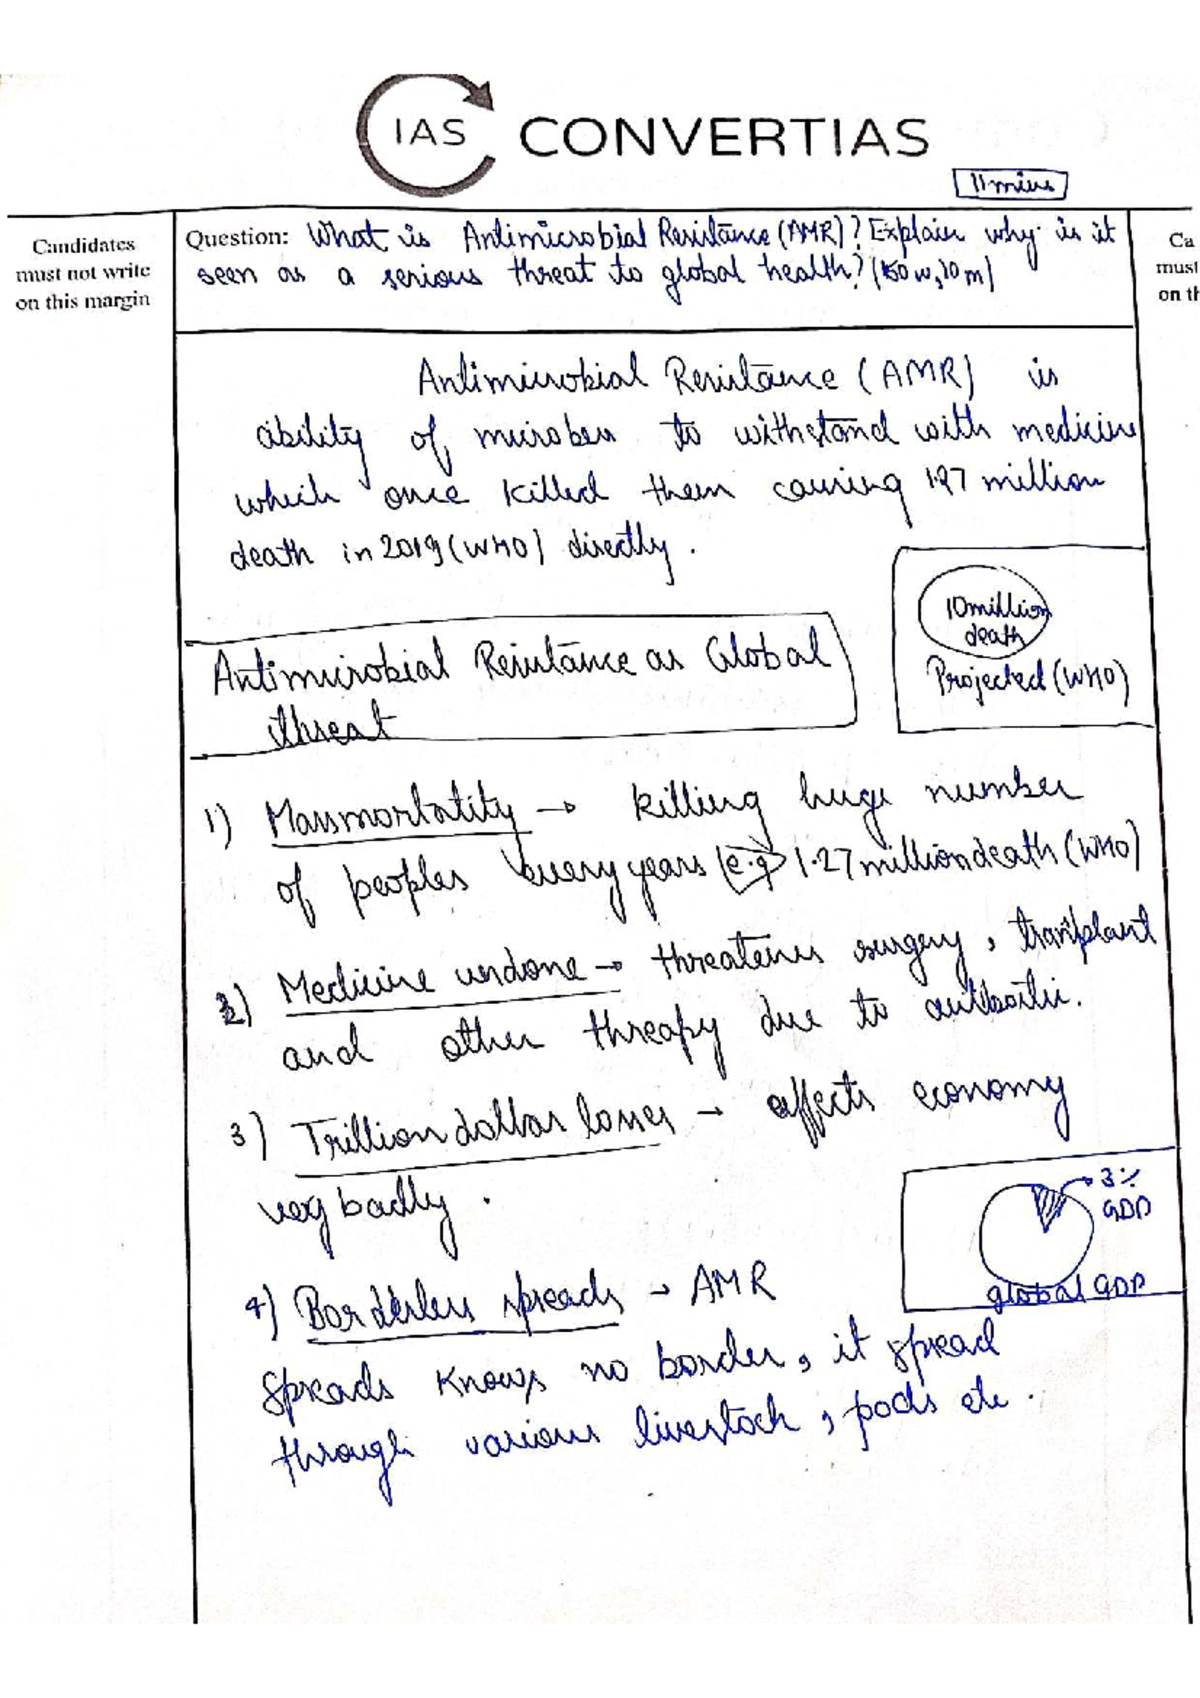 IAS CONVERTIAS
11 mins
Candidates
must not write
on this margin
Question: What is Antimicrobial Resistance (AMR)? Explain why is it
seen as a serious threat to global health? (150 w, 10 m)
Ca
must
on th
Antimicrobial Resistance (AMR) is
ability of microbes to withstand with medicine
which once killed them causing 1.27 million
death in 2019 (WHO) directly.
10 million
death
Projected (WHO)
Antimicrobial Resistance as Global
threat
1) Mass mortatity → killing huge number
of peoples every years (e.g 1.27 million death (WHO)
2) Medicine undone → threatens surgery, transplant
and other threapy due to
3) Trillion dollar losses → affects economy
very badly.
3%
GDP
global GDP
4) Borderless spreads → AMR
spreads knows no border, it spread
through various livestock, pods etc.